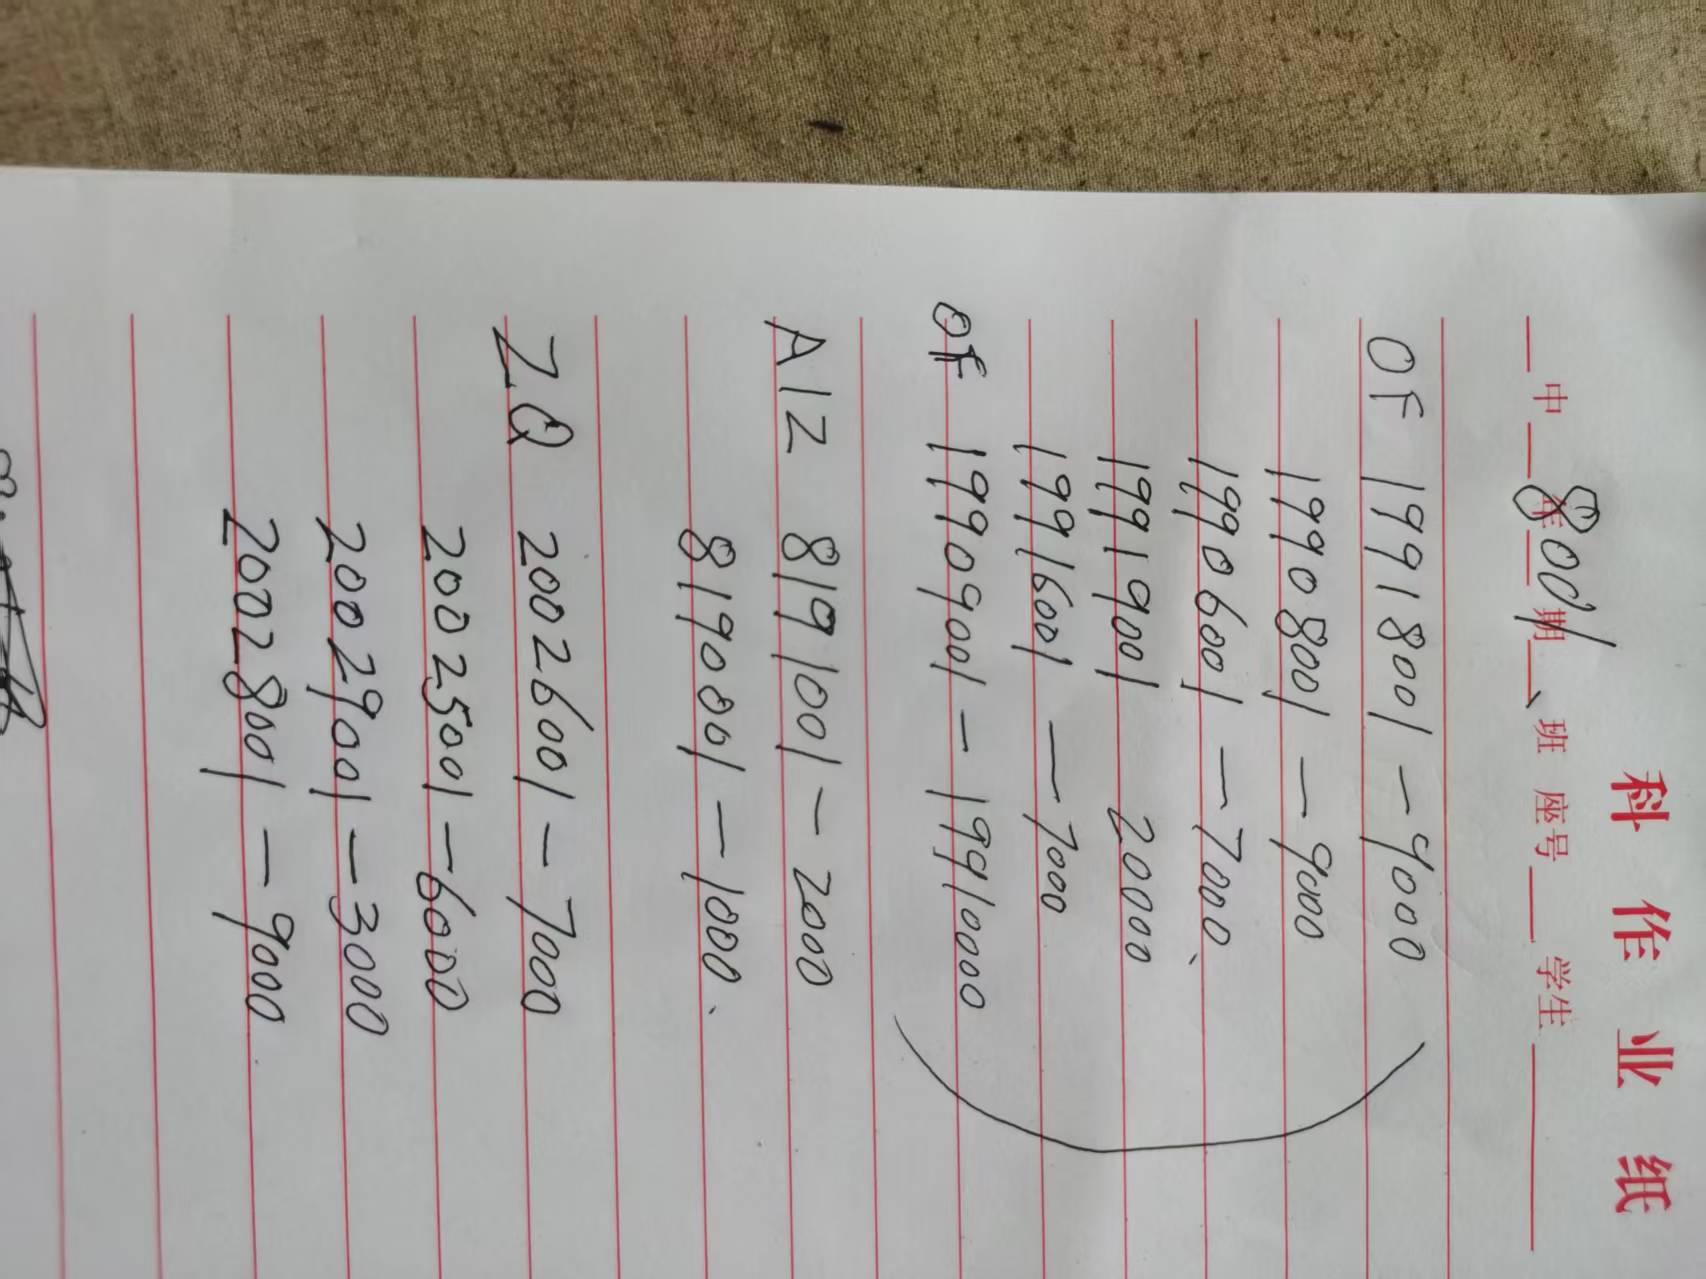 科作业纸
中 年 期 、 班 座号 学生
8001
OF 1991801 — 9000
1990800 1 — 9000
1990600 1 — 7000、
1991900 1 20000
1991600 1 — 7000
OF 1990900 1 — 1991000
A1Z 819100 1 — 2000
819000 1 — 1000.
ZQ 2002600 1 — 7000
2002500 1 — 6000
2002900 1 — 3000
2002800 1 — 9000